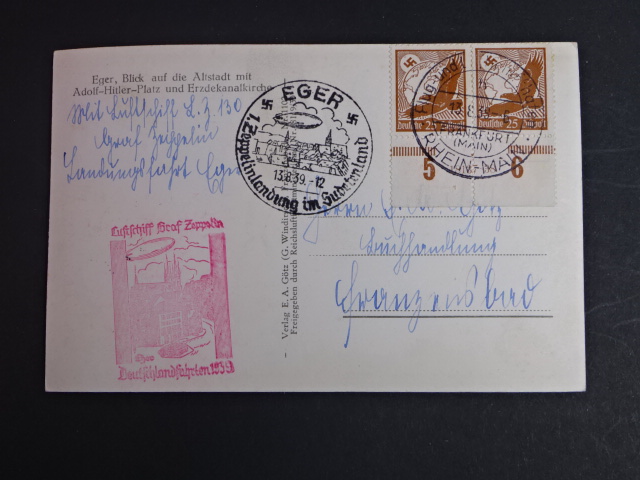 Eger, Blick auf die Altstadt mit
Adolf-Hitler-Platz und Erzdekanalkirche
Mit Luftschiff L.Z. 130
Graf Zeppelin
Landungsfahrt Eger
EGER
1. Zeppelinlandung im Sudetenland
13.8.39.-12
Deutsche 25
Deutsche 25
FRANKFURT
(MAIN)
RHEIN-MAIN
5 6
Luftschiff Graf Zeppelin
Eger
Deutschlandfahrten 1939
Verlag E. A. Götz (G. Windi
Freigegeben durch Reichsluft
Herrn E. A. Götz
Buchhandlung
Franzensbad